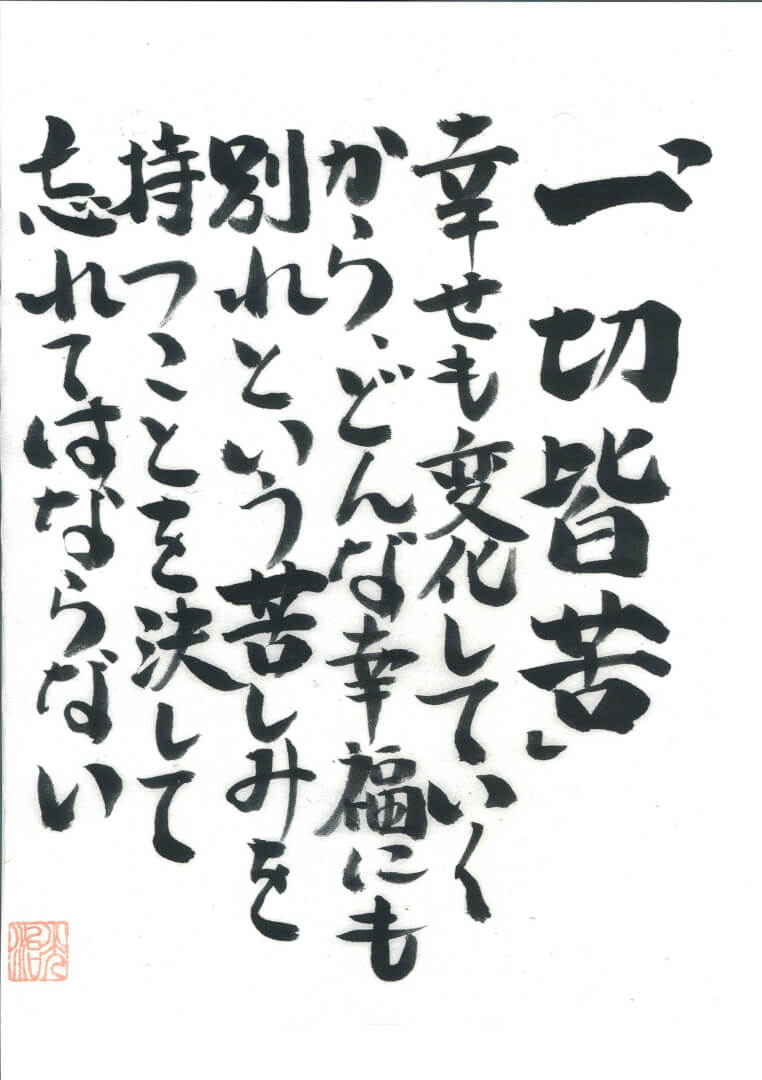 「一切皆苦」
幸せも変化していく
から、どんな幸福にも
別れという苦しみを
持つことを決して
忘れてはならない